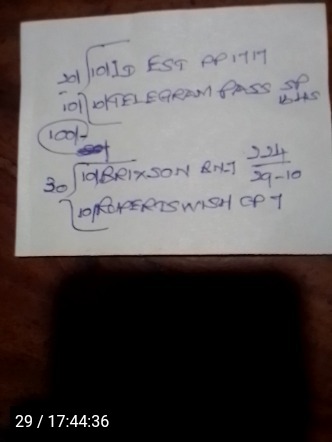 20/ 10/ ID EST AP 1717
10/ 10/ TELEGRAM PASS SP
100/-
30 10/ BRIXSON BNJ 224
29-10
10/ RUPERTSWISH CP 7
29 / 17:44:36